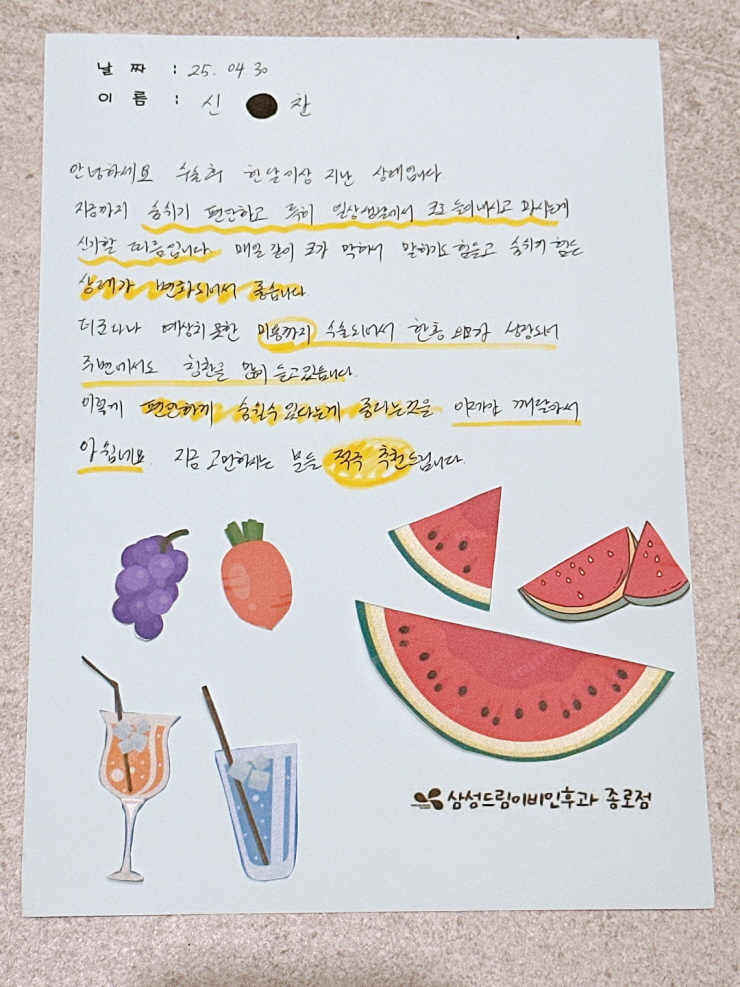 날 짜 : 25. 04. 30
이 름 : 신 찬
안녕하세요 수술후 한달이상 지난 상태입니다
지금까지 숨쉬기 편안하고 특히 일상생활에서 코로 들이내쉬고 마시는게
신기할 따름입니다. 매일 같이 코가 막혀서 말하기도 힘들고 숨쉬기 힘든
상태가 변화되어서 좋습니다.
더군다나 예상치 못한 미용까지 수술되어서 한층 외모가 성장되어
주변에서도 칭찬을 많이 듣고있습니다.
이렇게 편안하게 숨쉴수 있다는게 좋다는것을 이제감 깨달아서
아쉽네요. 지금 고민하시는 분들 적극 추천드립니다.
삼성드림이비인후과 종로점